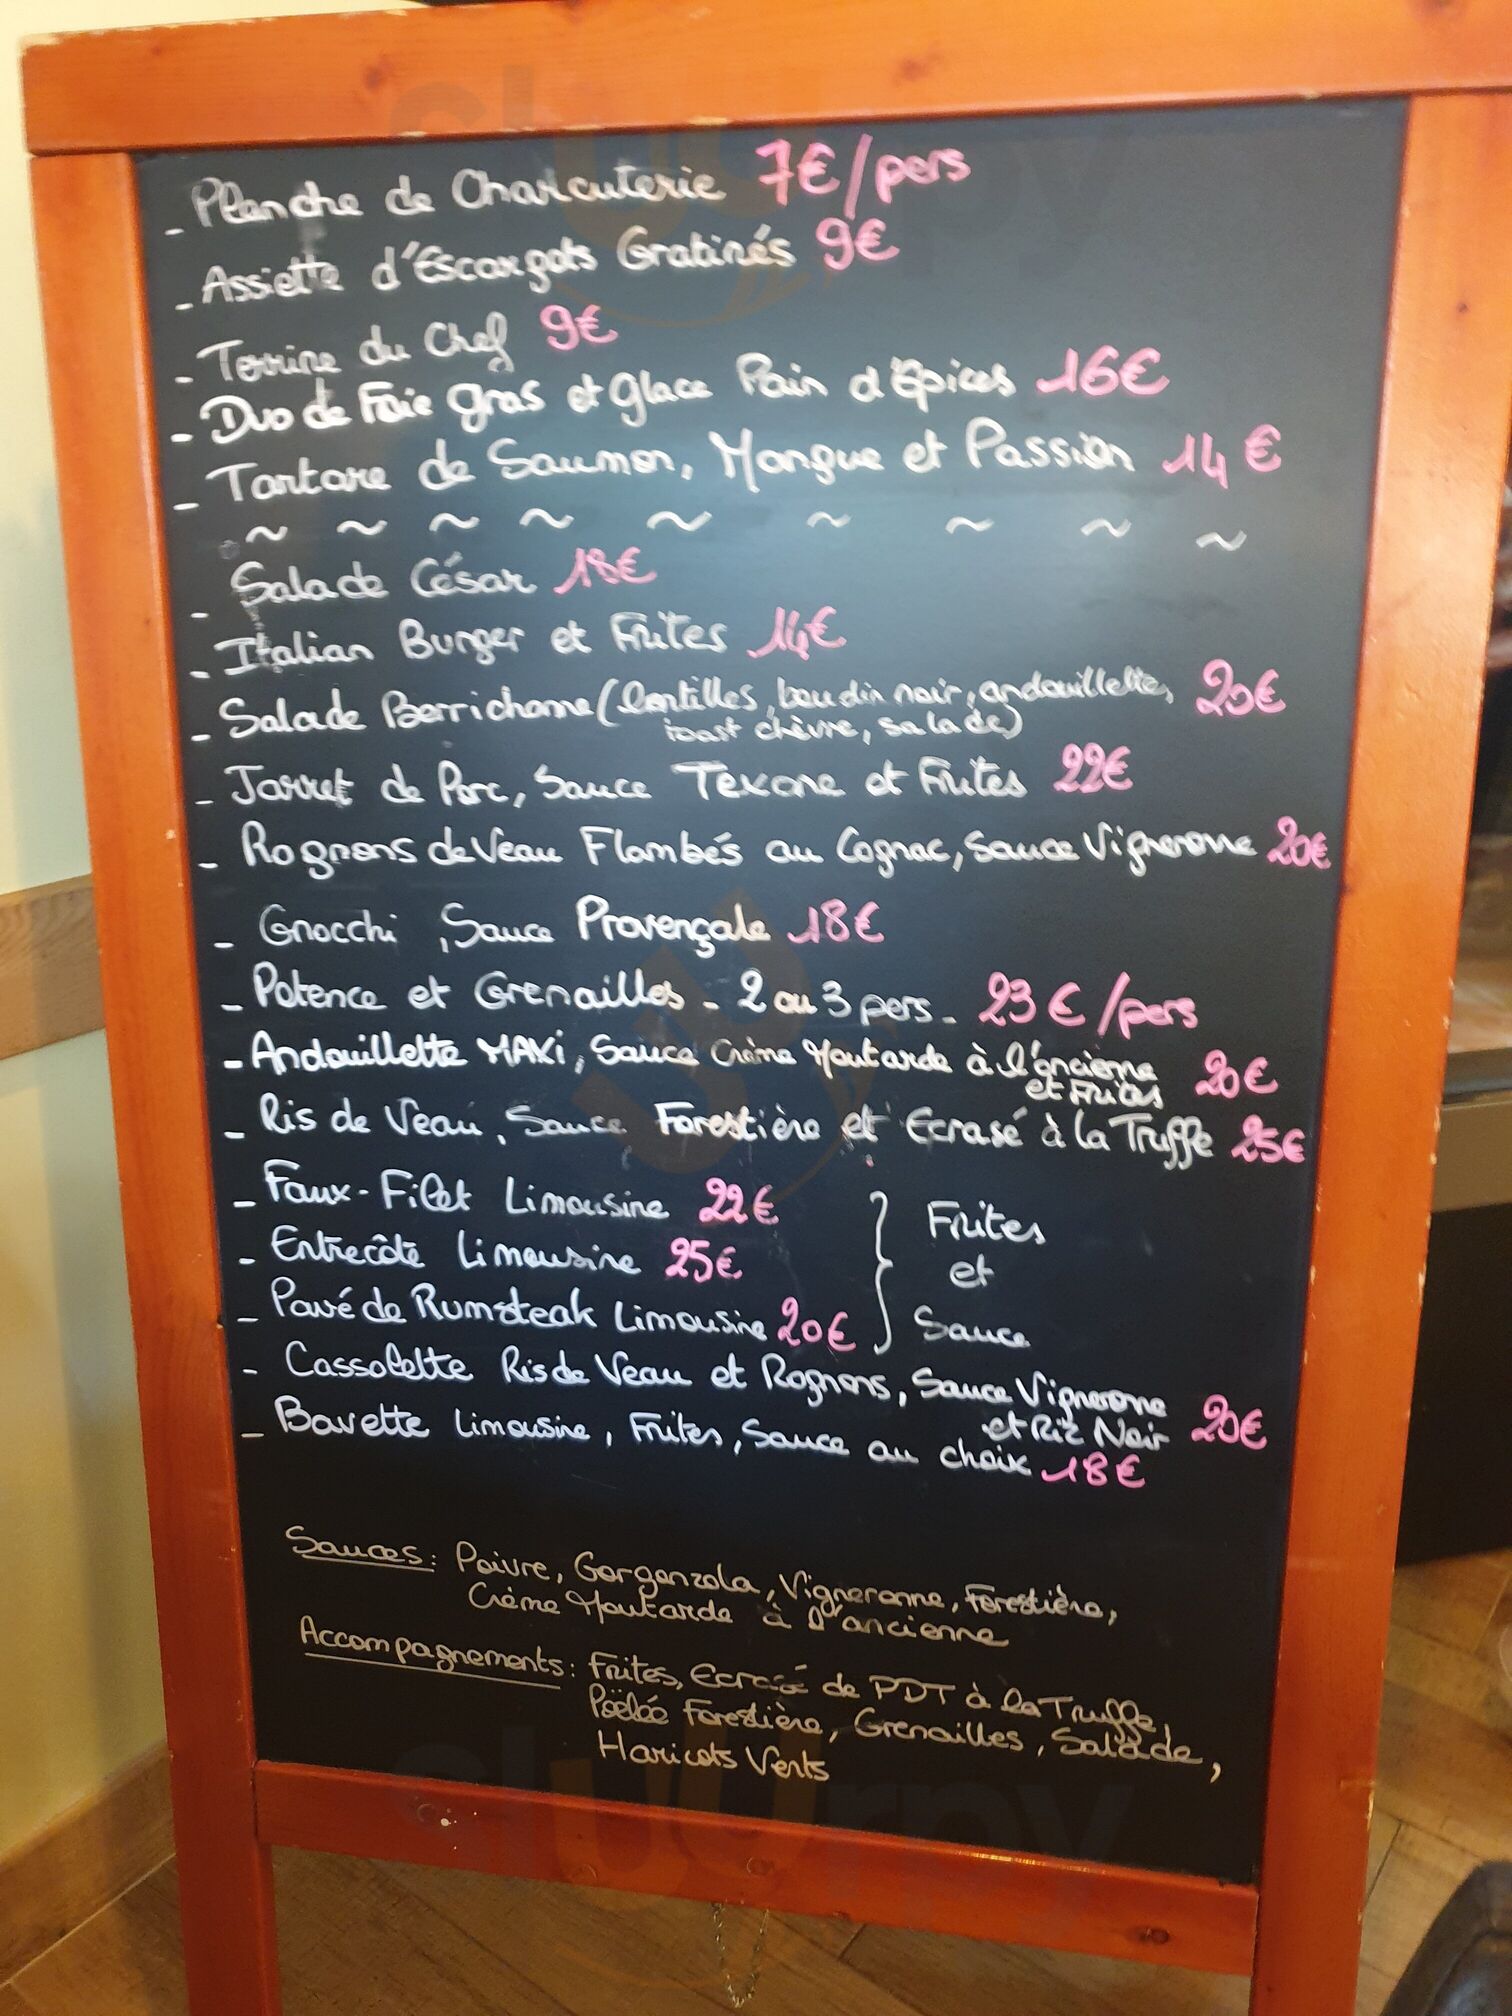 - Planche de Charcuterie 7€/pers
- Assiette d'Escargots Gratinés 9€
- Terrine du Chef 9€
- Duo de Foie gras et glace Pain d'épices 16€
- Tartare de Saumon, Mangue et Passion 14€
~ ~ ~ ~ ~ ~ ~ ~ ~
- Salade César 18€
- Italian Burger et Frites 14€
- Salade Berrichonne (lentilles, boudin noir, andouillette, 20€
toast chèvre, salade)
- Jarret de Porc, Sauce Texane et Frites 22€
- Rognons de Veau Flambés au Cognac, Sauce Vigneronne 20€
- Gnocchi, Sauce Provençale 18€
- Potence et Grenailles - 2 ou 3 pers - 23€/pers
- Andouillette MAXi, Sauce Crème Moutarde à l'ancienne 20€
et Frites
- Ris de Veau, Sauce Forestière et Ecrasé à la Truffe 25€
- Faux-Filet Limousine 22€
- Entrecôte Limousine 25€
- Pavé de Rumsteak Limousine 20€
} Frites
et
Sauce
- Cassolette Ris de Veau et Rognons, Sauce Vigneronne
et Riz Noir 20€
- Bavette Limousine, Frites, Sauce au choix 18€
Sauces: Poivre, Gorgonzola, Vigneronne, Forestière,
Crème Moutarde à l'ancienne
Accompagnements: Frites, Ecrasé de PDT à la Truffe,
Poëlée Forestière, Grenailles, Salade,
Haricots Verts
sluurpy
sluurpy